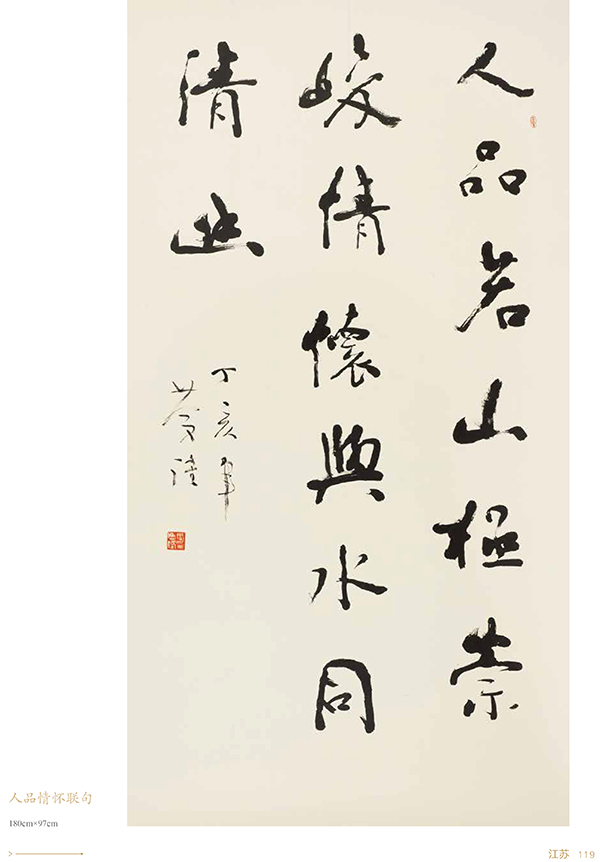 人品若山極崇
峻情懷與水同
清幽
丁亥年
人品情怀联句
180cm×97cm
江苏 119